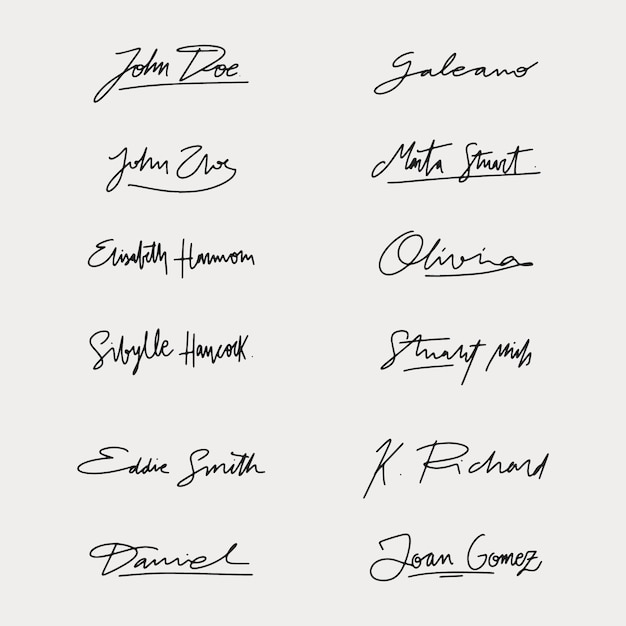 John Doe
Galeano
John
Marta Stuart.
Elisabeth
Olivia
Sibylle Hancock.
Stuart
Eddie Smith
K. Richard
Daniel
Joan Gomez